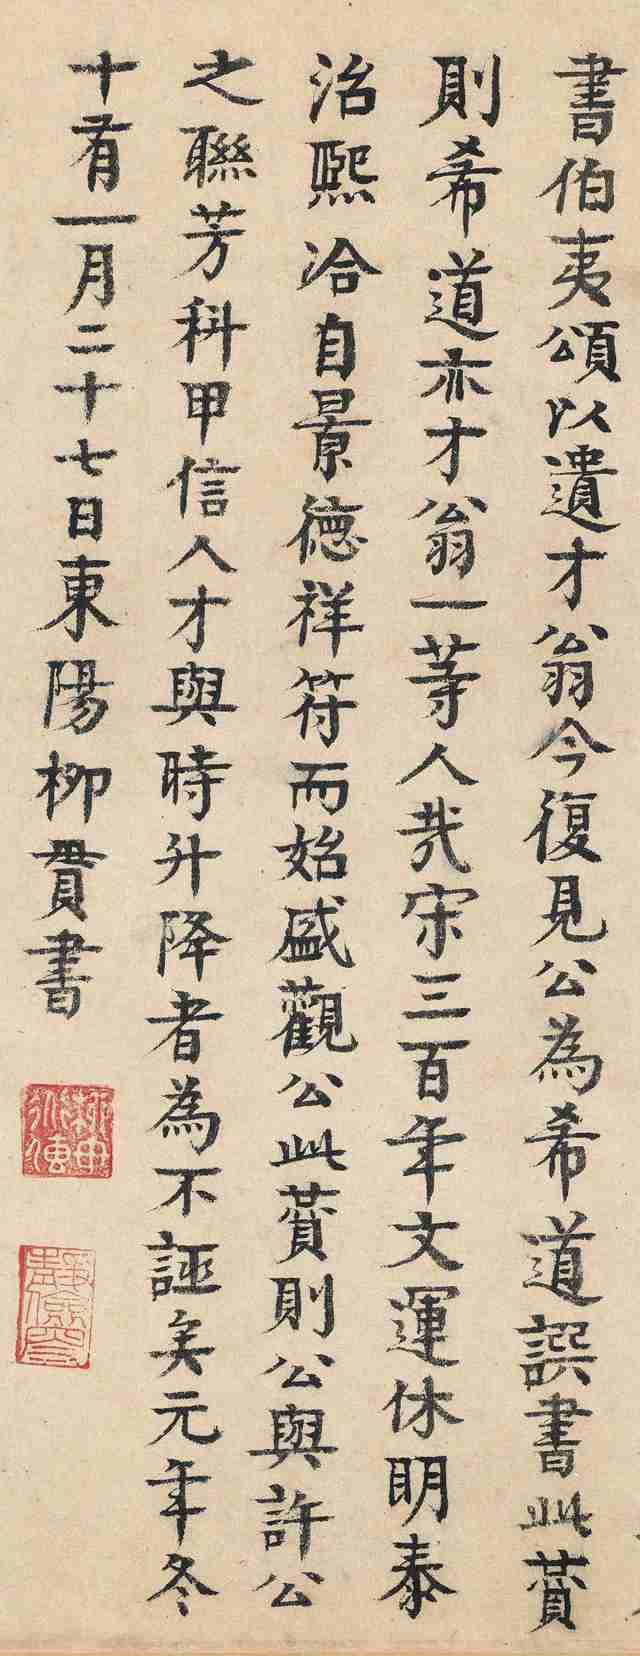 書伯夷頌以遺才翁今復見公為希道譔書此賛
則希道亦才翁一等人哉宋三百年文運休明泰
治熙洽自景德祥符而始盛觀公此賛則公與許公
之聯芳科甲信人才與時升降者為不誣矣元年冬
十有一月二十七日東陽柳貫書